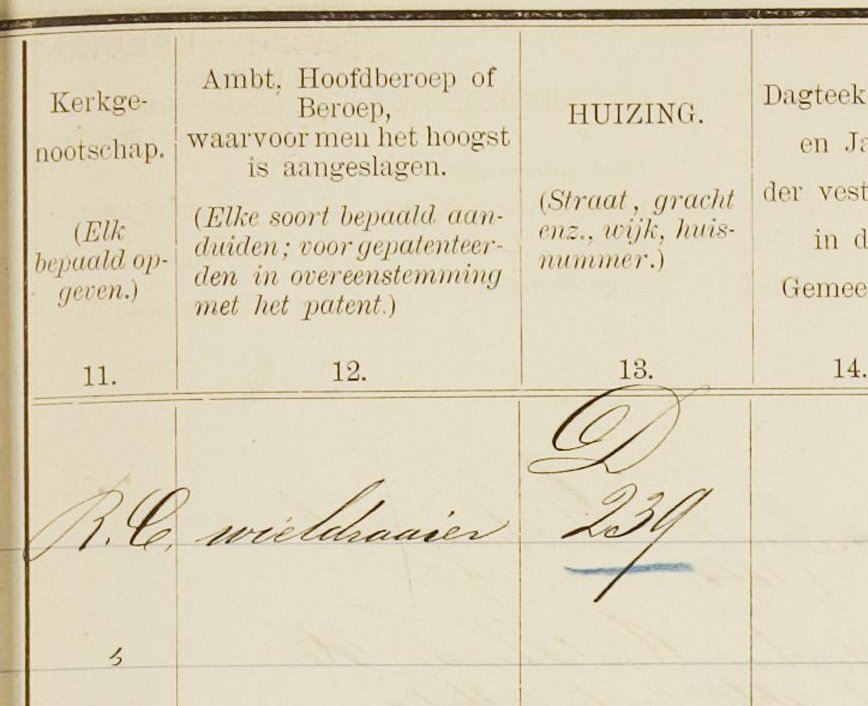 Kerkge-
nootschap.
(Elk
bepaald op-
geven.)
11.
Ambt, Hoofdberoep of
Beroep,
waarvoor men het hoogst
is aangeslagen.
(Elke soort bepaald aan-
duiden; voor gepatenteer-
den in overeenstemming
met het patent.)
12.
HUIZING.
(Straat, gracht
enz., wijk, huis-
nummer.)
13.
Dagteek
en Ja
der vest
in d
Gemee
14.
R.C. wieldraaier
D
239